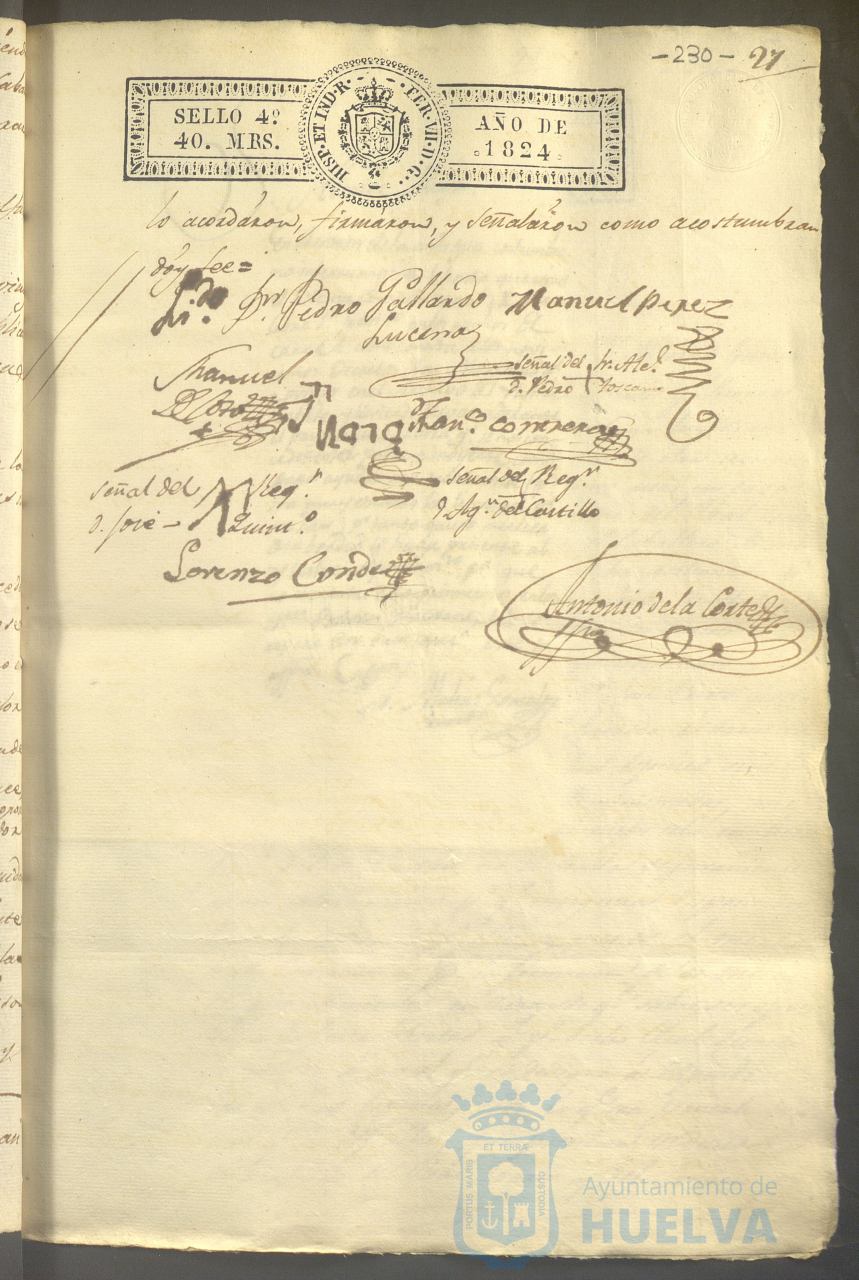 -230- 27
SELLO 4º
40. MRS.
HISP. ET IND. R. FER. VII. D. G.
AÑO DE
1824
lo acordáron, firmáron, y señaláron como acostumbran
dóy fee=
Li.do Dn. Pedro Gallardo Manuel Perez
Lucena
señal del Sr. Ale.l
d. Pedro Toscano
Manuel
Franco. contreras
señal del Reg.r
d. José Quint.o
señal del Reg.r
d Ag.n del Castillo
Lorenzo Conde
Antonio de la Corte
ET TERRÆ
PORTUS MARIS
CUSTODIA
Ayuntamiento de
HUELVA